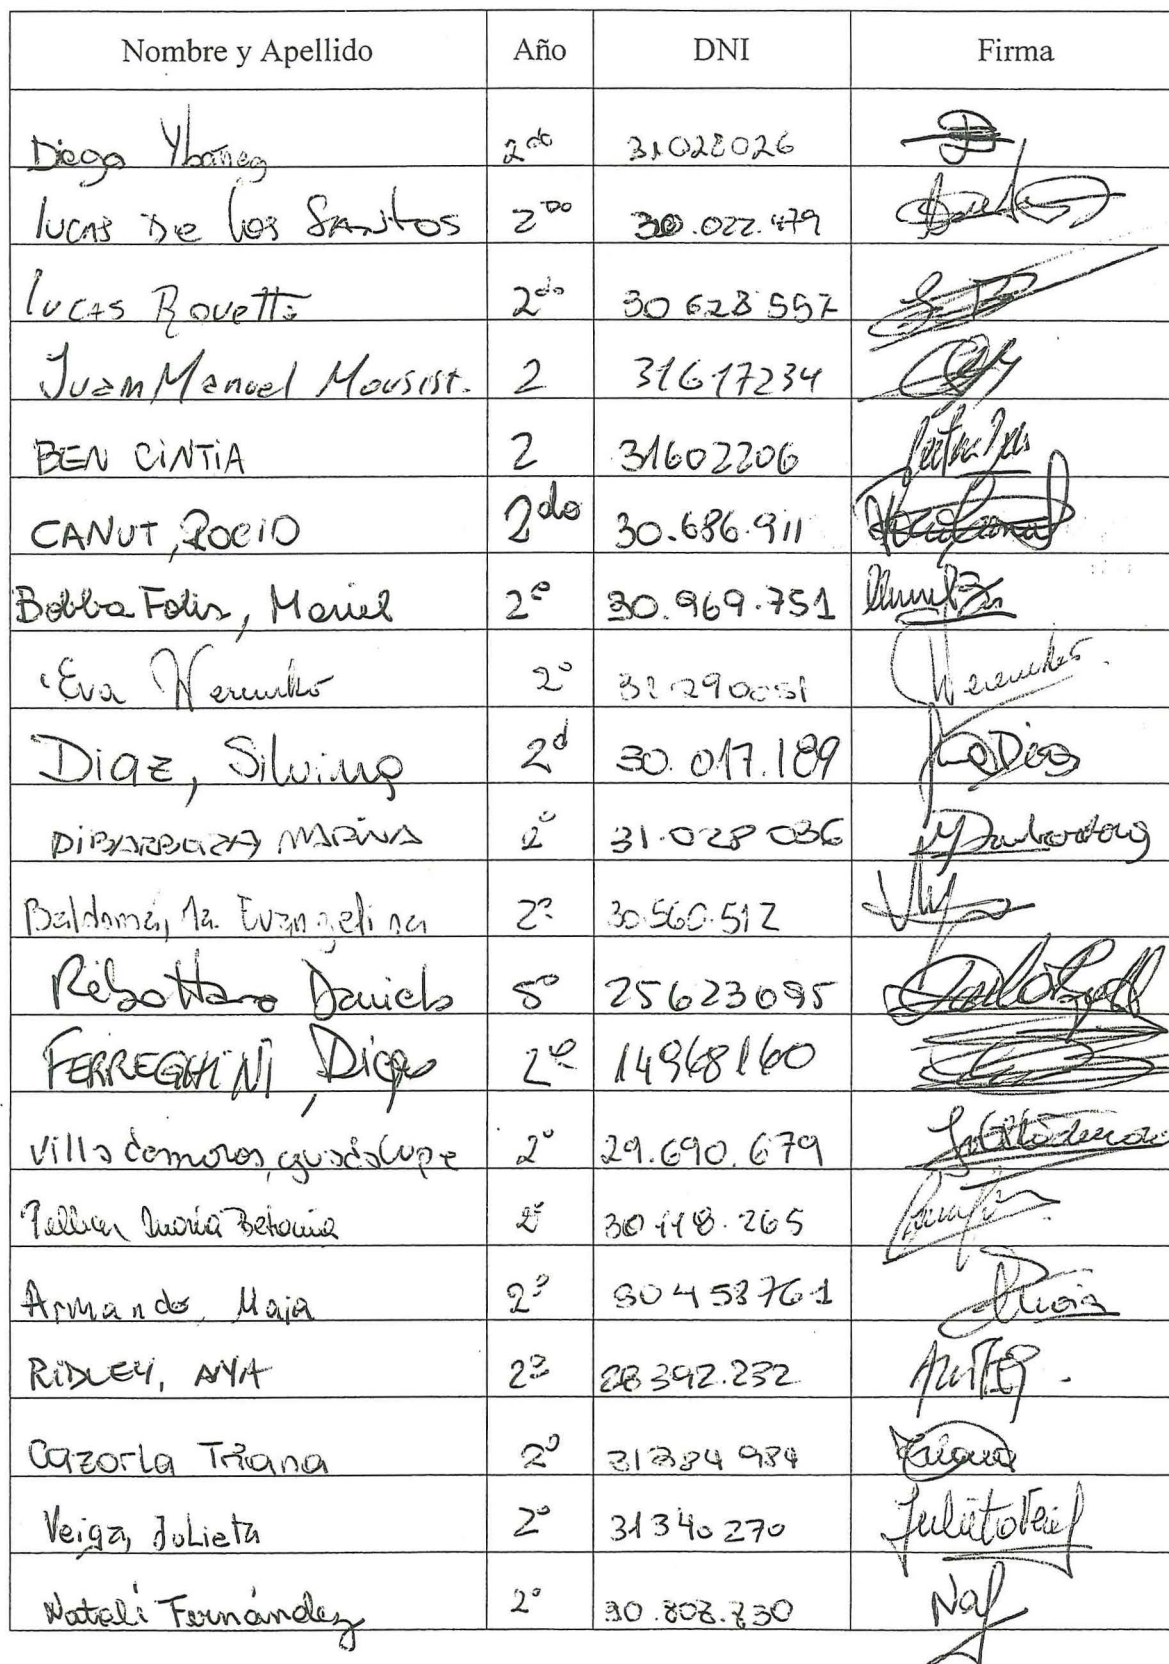 Nombre y Apellido Año DNI Firma
Diego Ybañez 2do 31028026
lucas De los SAntos 2DO 30.022.479
lucas Rovetti 2do 30 628 557
Juan Manuel Mousist. 2 31617234
BEN CiNTiA 2 31602206
CANUT, ROCIO 2do 30.686.911
Bobba Folis, Mariel 2º 30.969.751
Eva 2º
Diaz, Silvina 2d 30.017.189
2º 31.028 036
Baldomá, Ma. Evangelina 2º 30.560.512
Ribottaro Daniela 5º 25623095
FERREGHINI, Diego 2º 14968160
Villa demoros, guadalupe 2º 29.690.679
María Betania 2º 30 118.265
Armando, Maia 2º 30458761
RiDLEY, ANA 2º 28392.232
Cazorla Triana 2º 31384984
Veiga, Julieta 2º 31340270
Natalí Fernández 2º 30.808.730